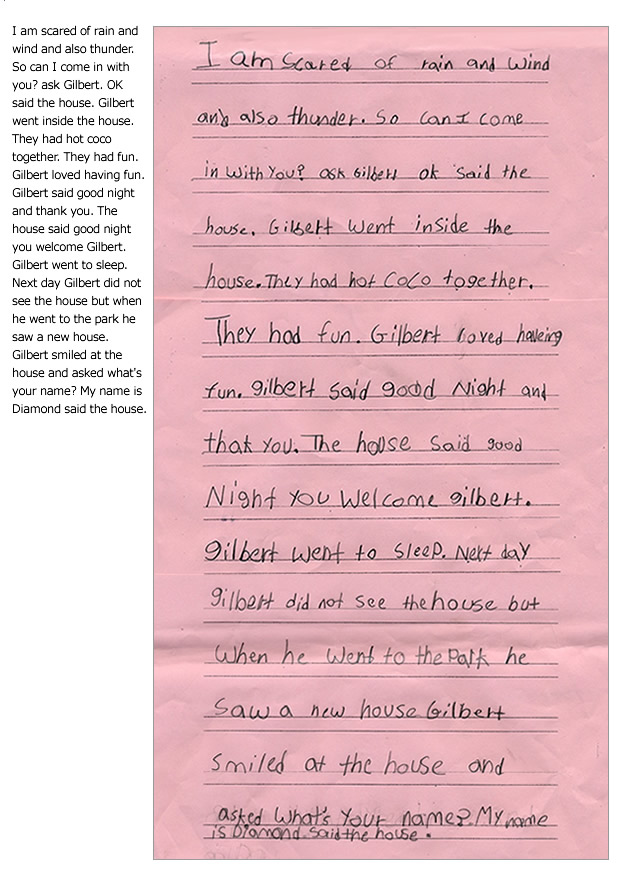 I am scared of rain and
wind and also thunder.
So can I come in with
you? ask Gilbert. OK
said the house. Gilbert
went inside the house.
They had hot coco
together. They had fun.
Gilbert loved having fun.
Gilbert said good night
and thank you. The
house said good night
you welcome Gilbert.
Gilbert went to sleep.
Next day Gilbert did not
see the house but when
he went to the park he
saw a new house.
Gilbert smiled at the
house and asked what's
your name? My name is
Diamond said the house.
I am scared of rain and wind
and also thunder. So can I come
in with You? ask Gilbert ok said the
house. Gilbert went inside the
house. They had hot CoCo together.
They had fun. Gilbert loved haveing
fun. gilbert said good Night and
thak you. The house said good
Night you Welcome gilbert.
gilbert went to sleep. Next day
gilbert did not see the house but
When he went to the Park he
Saw a new house Gilbert
smiled at the house and
asked What's Your name? My name
is Diamond said the house.